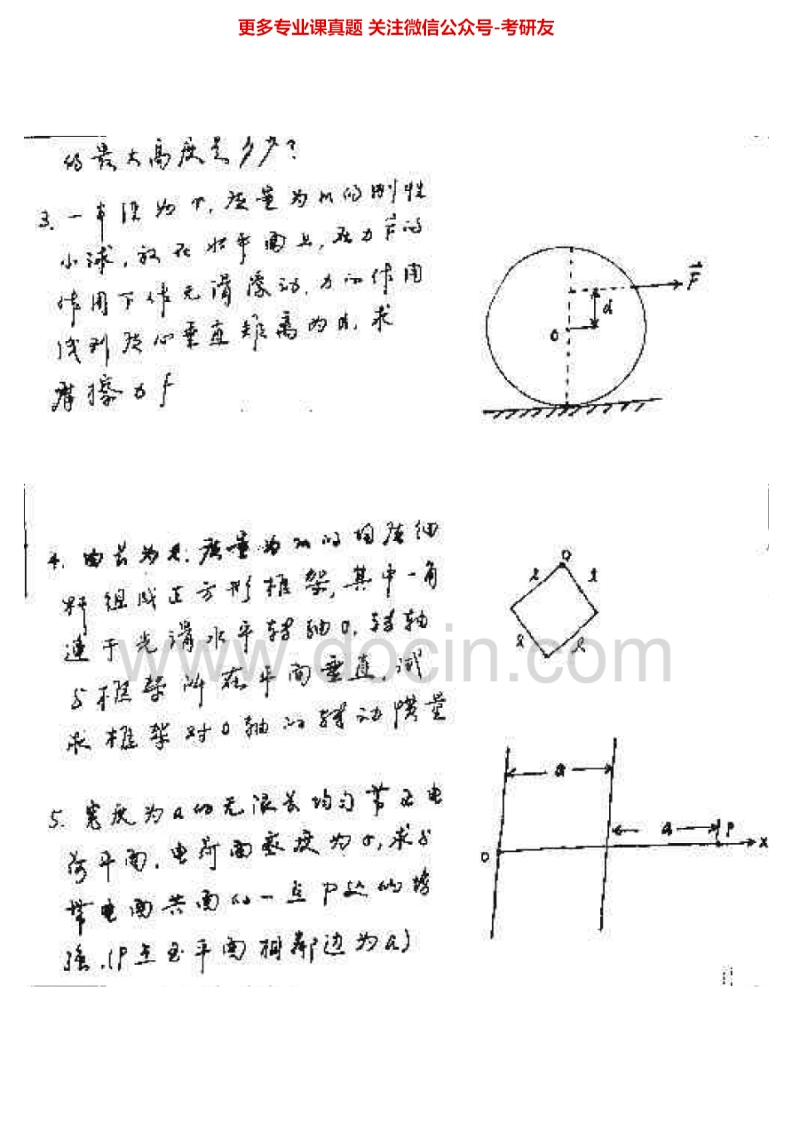 更多专业课真题 关注微信公众号-考研友
的最大高度是多少?
3. 一半径为r,质量为m的刚性
小球,放在水平面上,在力F的
作用下作无滑滚动,力的作用
线到质心垂直距离为d,求
摩擦力f
F
d
O
4. 由长为l,质量为m的均质细
杆组成正方形框架,其中一角
连于光滑水平转轴O,转轴
与框架所在平面垂直,试
求框架对O轴的转动惯量
O
l l
l l
www.docin.com
5. 宽度为a的无限长均匀带正电
荷平面,电荷面密度为σ,求与
带电面共面的一点P处的场
强.(P点至平面相邻边为a)
a
a P
O x